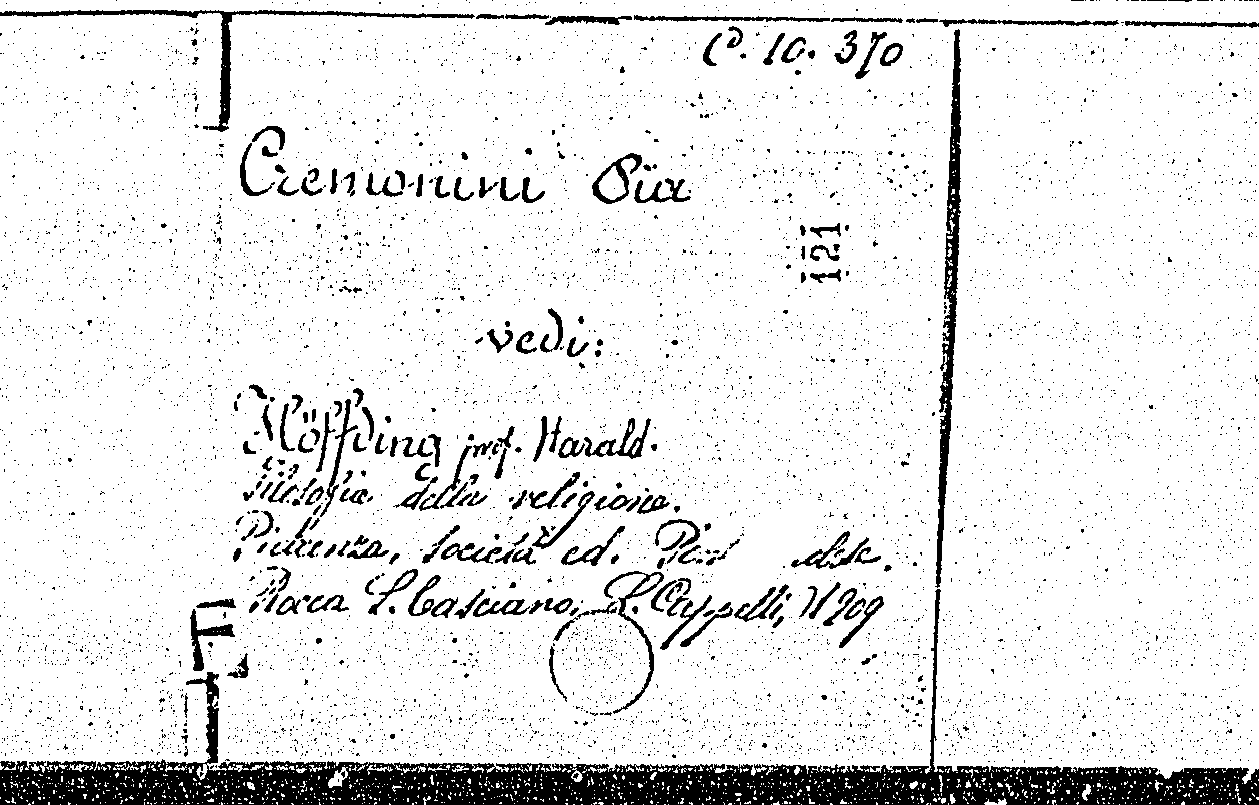 C. 10. 370
Cremonini Pia
121
vedi:
Höffding prof. Harald.
Filosofia della religione.
Piacenza, Società ed.
Rocca S. Casciano, L. Cappelli, 1909